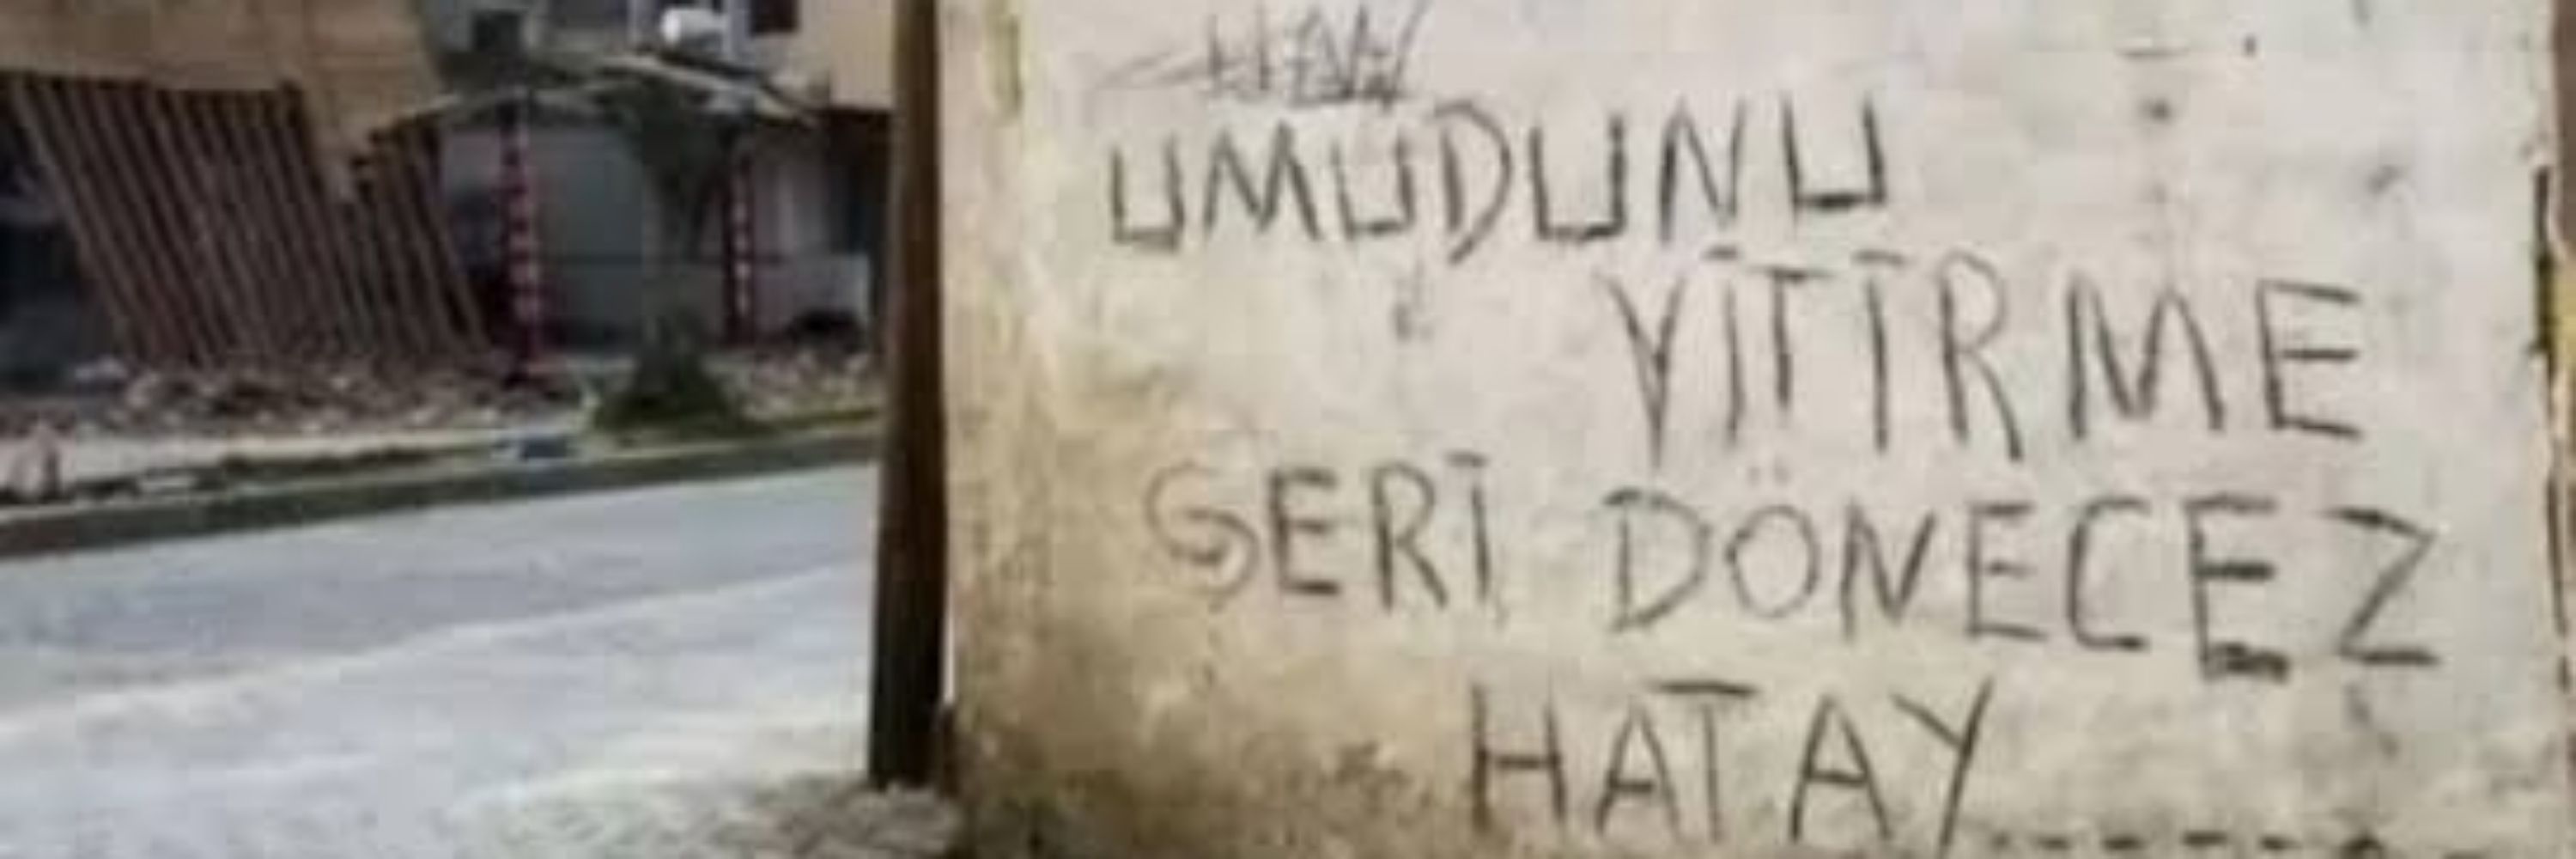 UMUDUNU
YİTİRME
GERİ DÖNECEZ
HATAY......